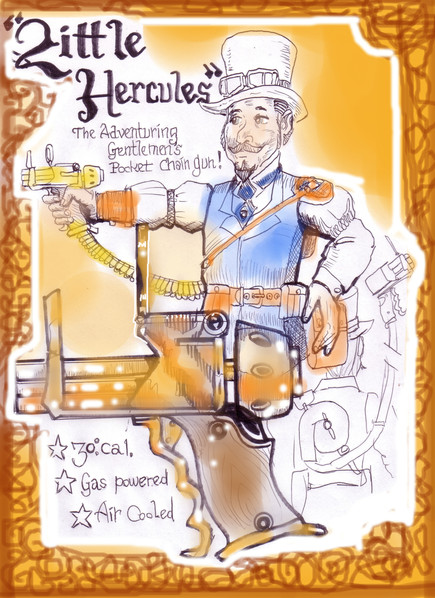 "Little
Hercules"
The Adventuring
Gentlemen's
Pocket Chain gun!
30.cal.
Gas powered
Air Cooled